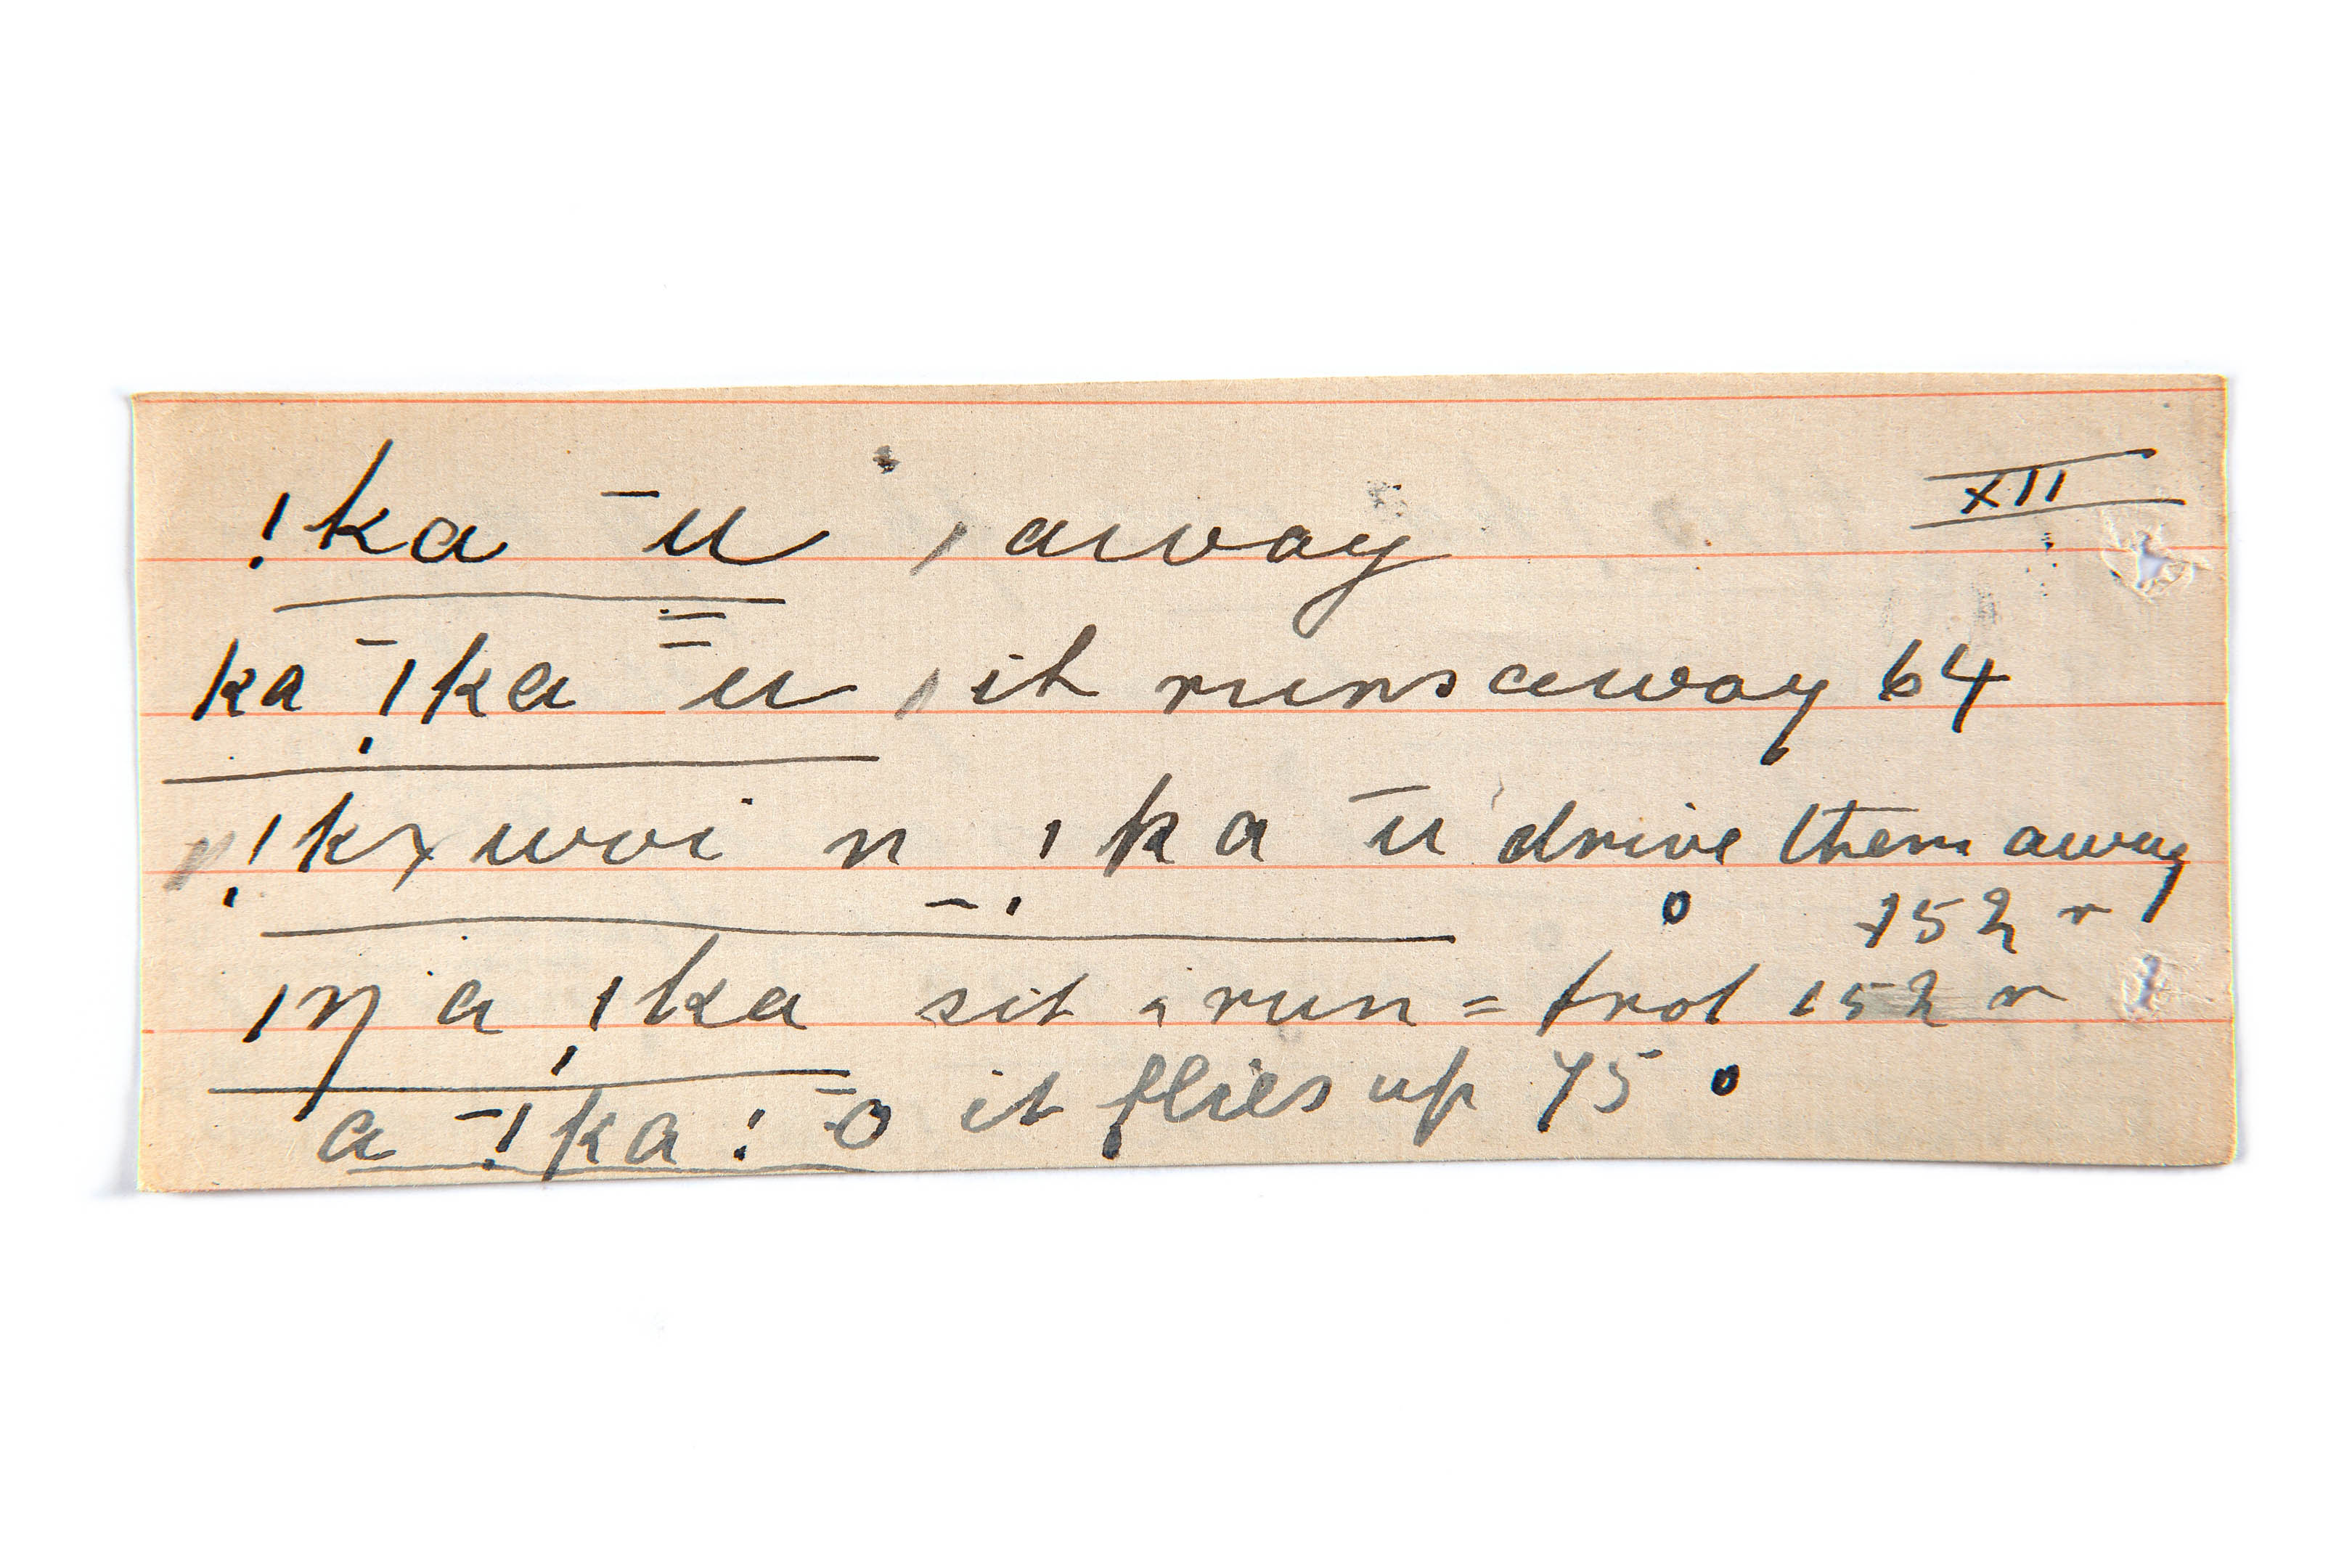 XII
!ka ¯u, away
ka ¯!ka ⁼u, it runs away 64
!kxwoi n _ !ka ū drive them away
152 r
ıŋ a !ka sit, run = trot 152 r
a ¯!ka: ⁼o it flies up 75 o